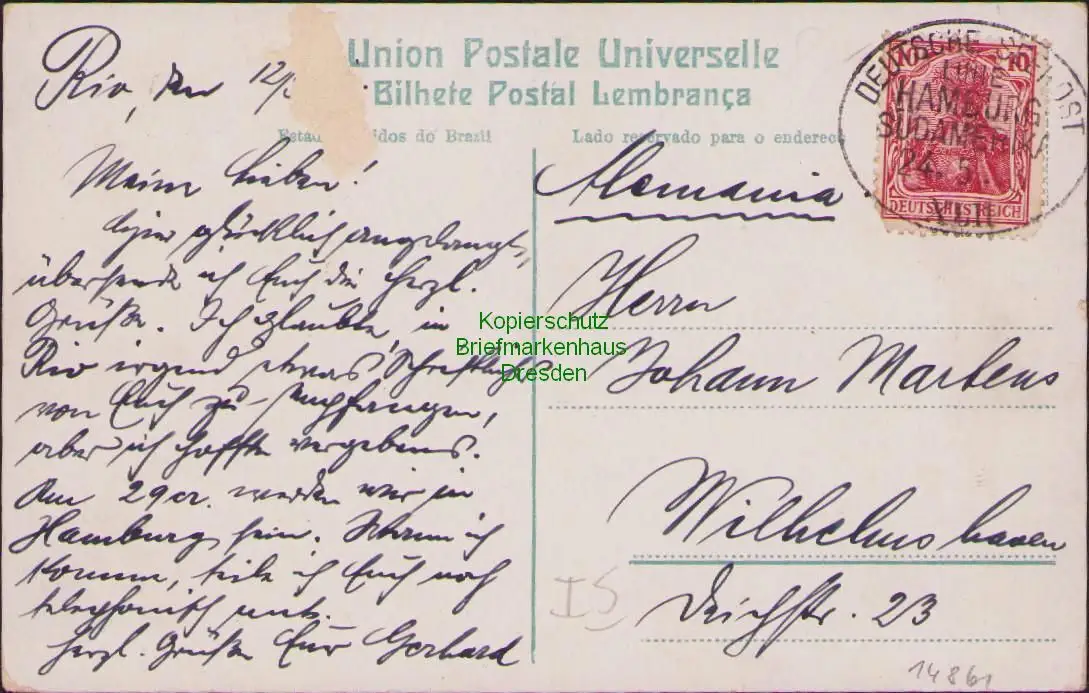 Union Postale Universelle
Bilhete Postal Lembrança
Estad idos do Brazil
Lado reservado para o endereço
Rio, den 12/5
Meine Lieben!
Hier glücklich angelangt,
übersende ich Euch die herzl.
Grüße. Ich glaubte, in
Rio irgend etwas Schriftliches
von Euch zu empfangen,
aber ich hoffte vergebens.
Am 29 cr. werden wir in
Hamburg sein. Wann ich
komme, teile ich Euch noch
telephonisch mit.
Herzl. Grüße Euer Gerhard
Alemania
Herrn
Johann Martens
Wilhelmshaven
Deichstr. 23
DEUTSCHE SEEPOST
LINIE
HAMBURG
SÜDAMERIKA
24. 5
XIII
10
DEUTSCHES REICH
Kopierschutz
Briefmarkenhaus
Dresden
IS
1486